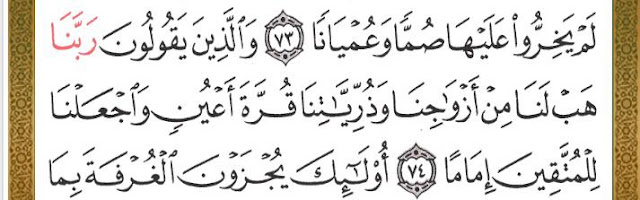 لَمْ يَخِرُّوا۟ عَلَيْهَا صُمًّا وَعُمْيَانًا ٧٣ وَالَّذِينَ يَقُولُونَ رَبَّنَا
هَبْ لَنَا مِنْ أَزْوَٰجِنَا وَذُرِّيَّـٰتِنَا قُرَّةَ أَعْيُنٍ وَٱجْعَلْنَا
لِلْمُتَّقِينَ إِمَامًا ٧٤ أُو۟لَـٰٓئِكَ يُجْزَوْنَ ٱلْغُرْفَةَ بِمَا